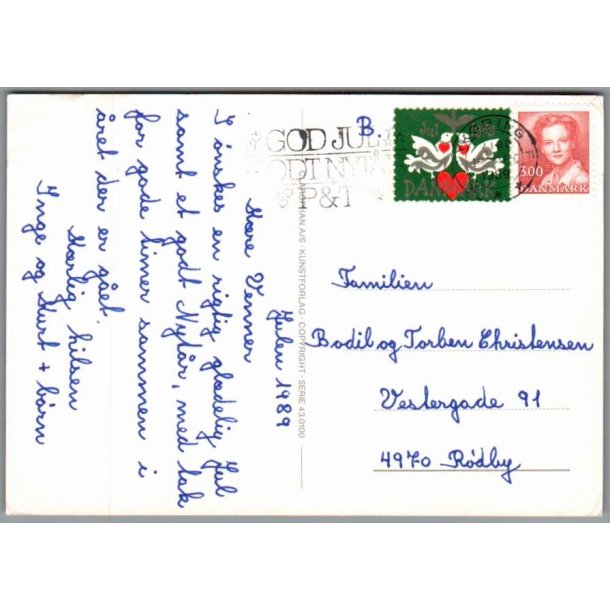 Julen 1989
Kære Venner
I ønskes en rigtig glædelig Jul
samt et godt Nytår, med tak
for gode timer sammen i
året der er gået.
Kærlig hilsen
Inge og Kurt + børn
B.
GOD JUL
GODT NYTÅR
P&T
Jul 1989
DANMARK
3.00
DANMARK
A/S · KUNSTFORLAG · COPYRIGHT · SERIE 43.0100
Familien
Bodil og Torben Christensen
Vestergade 91
4970 Rødby